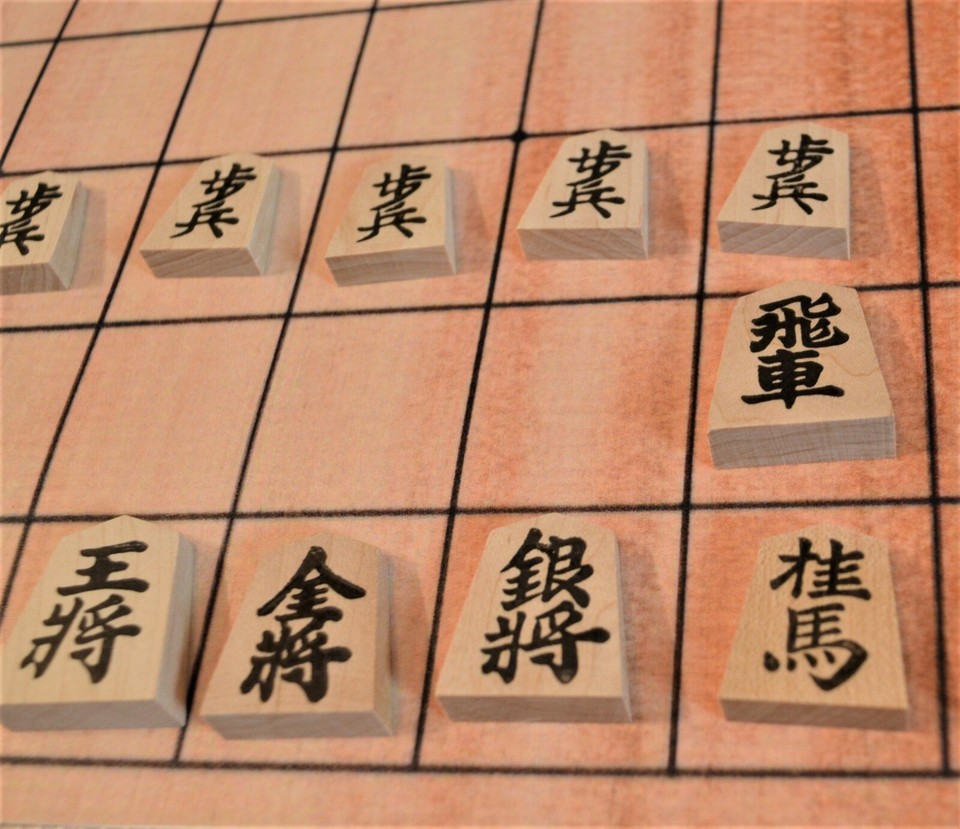 歩兵
歩兵
歩兵
歩兵
歩兵
飛車
王将
金将
銀将
桂馬